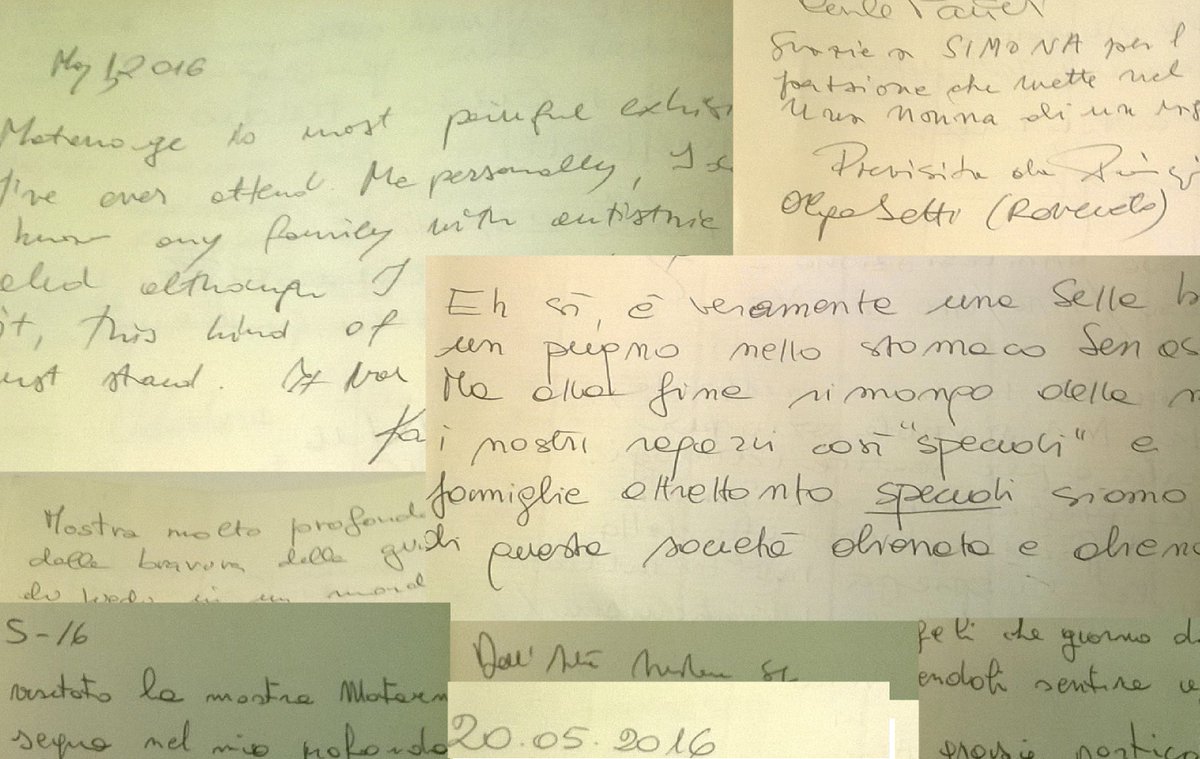 May 12 2016
Maternage is most painful exhibi
I've ever attend. Me personally, I
know any family with autistic
although I
it, this kind of
ust stand. It
Ka
Grazie a SIMONA per l
passione che mette nel
Una nonna di un
Previsità da
Olga Setti (Rovereto)
Eh sì, è veramente una bella b
un pugno nello stomaco ben as
Ma alla fine rimango della
i nostri ragazzi così "speciali" e
famiglie altrettanto speciali siamo
di questa società alienata e alien
Mostra molto profonda
dalla bravura della gui
S-16
visitato la mostra Matern
segno nel mio profondo
Dall'
20.05.2016
che giorno d
endoli sentire
grazie